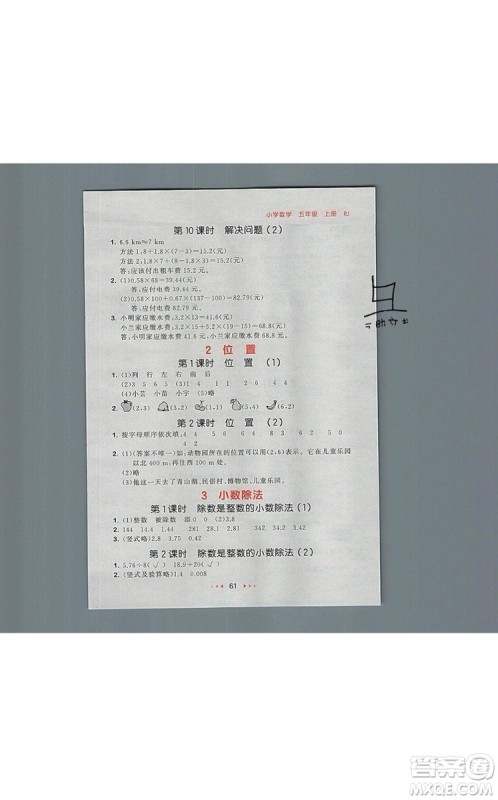 小学数学 五年级 上册 RJ
第10课时 解决问题(2)
1. 6.6 km≈7 km
方法1:8+1.8×(7-3)=15.2(元)
方法2:1.8×7+(8-1.8×3)=15.2(元)
答:应付出租车费15.2元。
2. (1)0.58×68=39.44(元)
答:应付电费39.44元。
答:应付电费82.79元。
答:小明家应缴水费41.6元,小兰家应缴水费68.8元。
2 位置
第1课时 位置(1)
1. (1)列 行 左 右 前 后
(2)3 5 6 5 1 4 2 6 4 4
(3)小芸 小苗 小丁 (4)略
2. (2,3) (3,2) (6,2) (5,4) (2,4)
第2课时 位置(2)
1. 按字母顺序依次填:4 4 5 6 6 4 7 4 8 6 9 4
2. (1)(答案不唯一)如:动物园所在的位置可以用(2,6)表示。它在儿童乐园
以北400 m,再往西100 m处。
(2)略
3. (答案不唯一)略去了青山湖、民俗村、博物馆、儿童乐园
3 小数除法
第1课时 除数是整数的小数除法(1)
1. (1)整数 被除数 添0 0 (2)3.8
2. 144 14.4 144 281 28.1 281 2.81
3. (竖式略)2.82 3.75 0.42
第2课时 除数是整数的小数除法(2)
1. 5.76÷8(√) 18.9÷6(√)
2. (竖式及验算略)1.4 0.008
61
答案圈
MXQE.COM